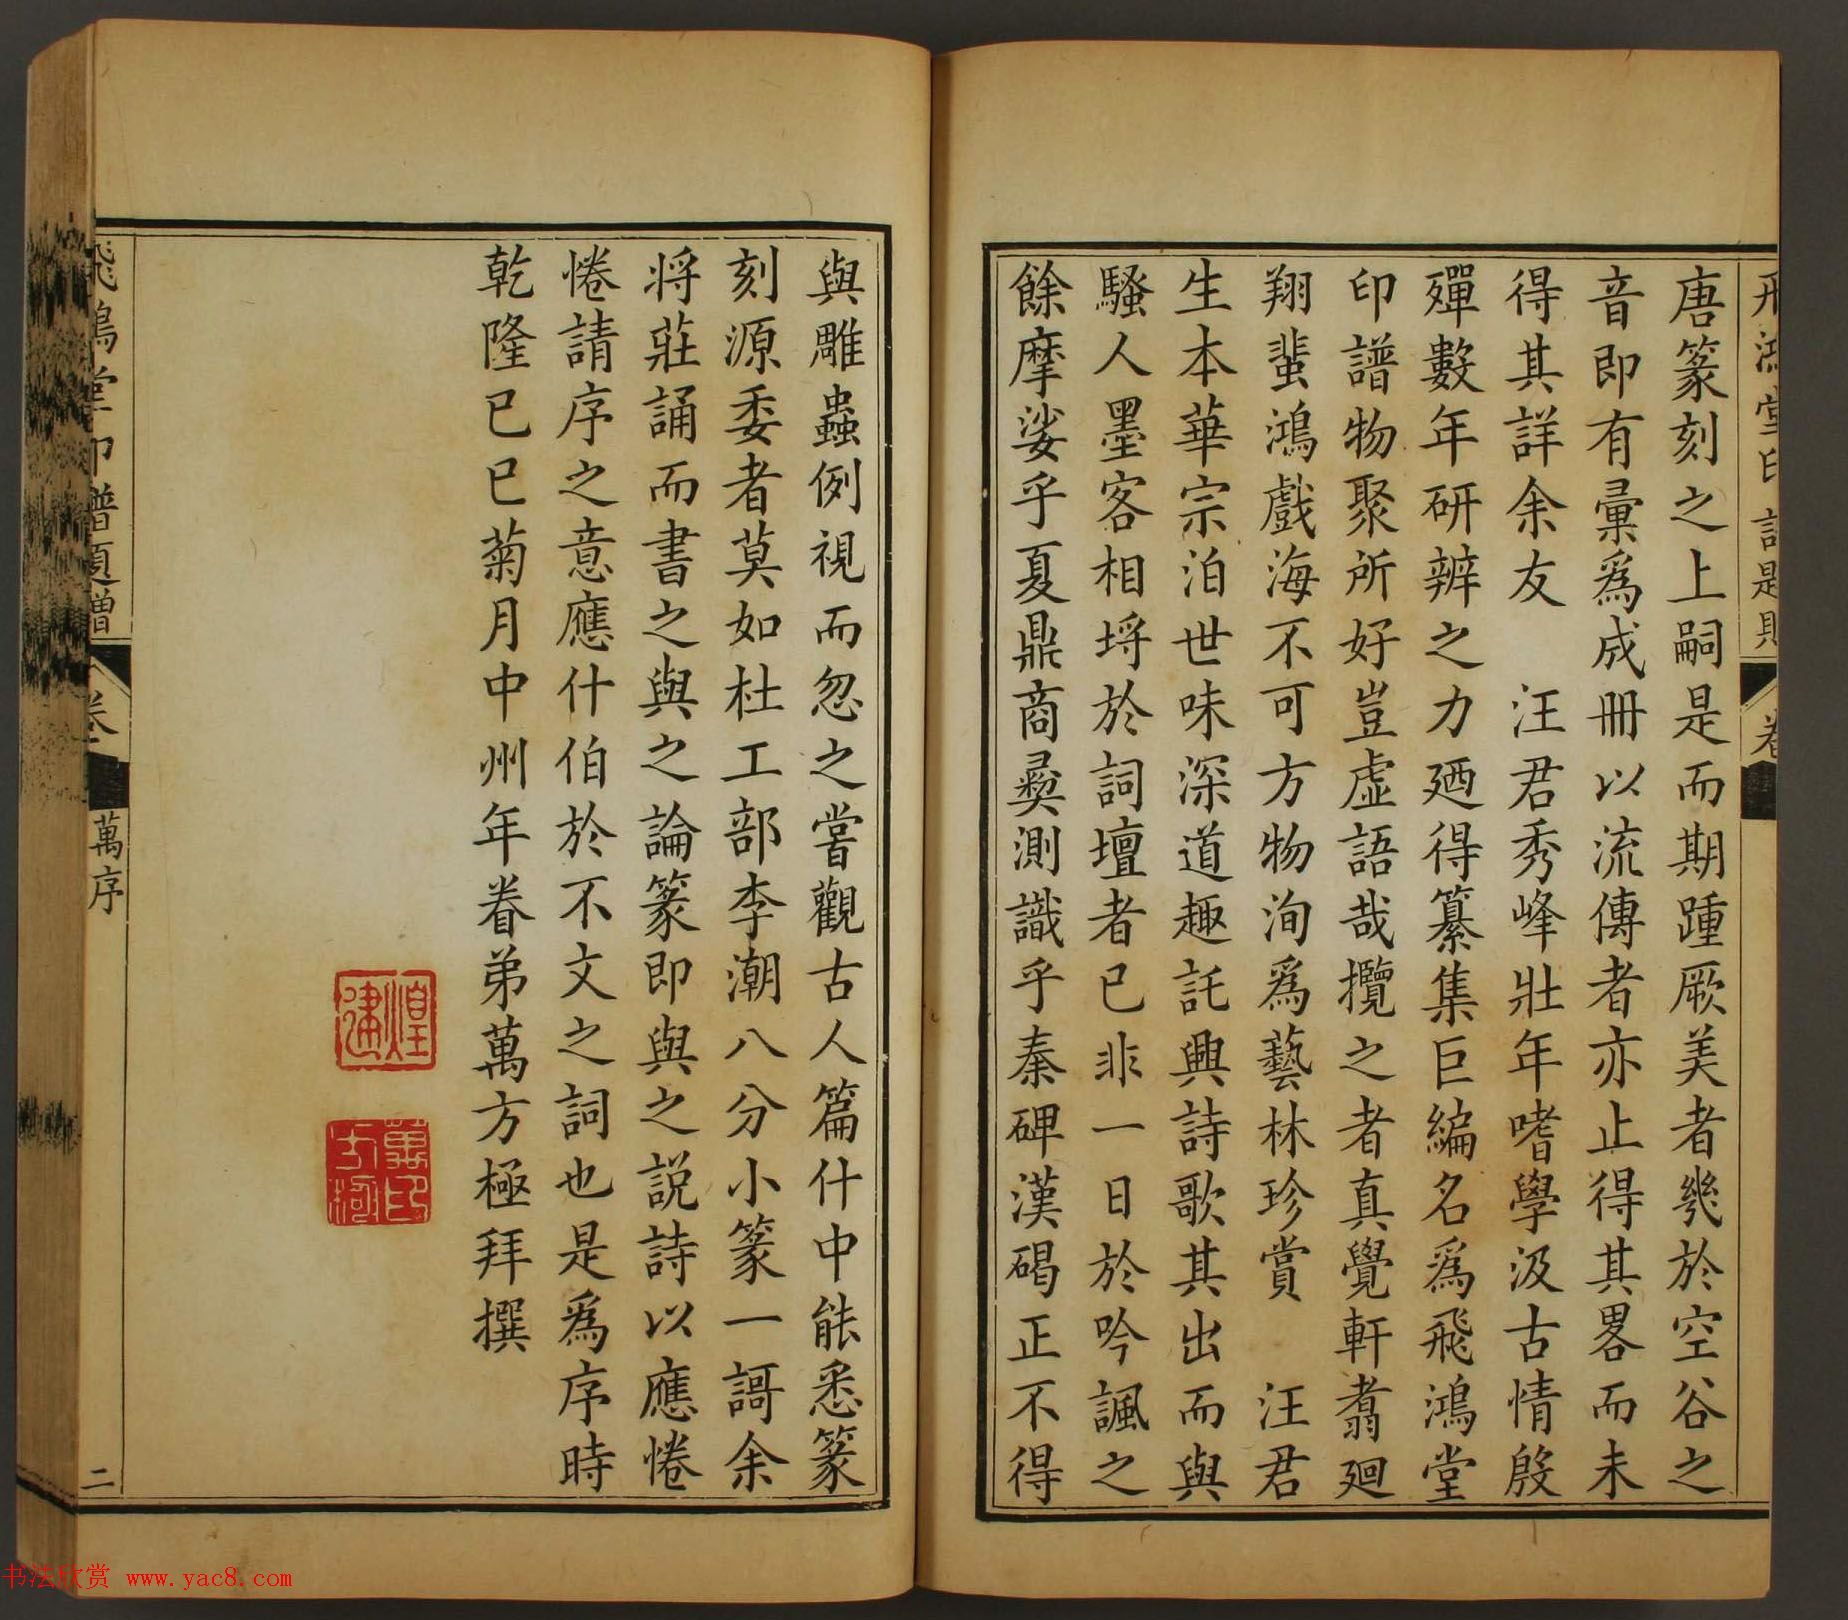 唐篆刻之上嗣是而期踵厥美者幾於空谷之
音即有彙爲成冊以流傳者亦止得其畧而未
得其詳余友　汪君秀峰壯年嗜學汲古情殷
殫數年研辨之力廼得纂集巨編名爲飛鴻堂
印譜物聚所好豈虛語哉攬之者真覺軒翥廻
翔蜚鴻戲海不可方物洵爲藝林珍賞　汪君
生本華宗泊世味深道趣託興詩歌其出而與
騷人墨客相埒於詞壇者已非一日於吟諷之
餘摩娑乎夏鼎商彝測識乎秦碑漢碣正不得
與雕蟲例視而忽之嘗觀古人篇什中能悉篆
刻源委者莫如杜工部李潮八分小篆一謌余
將莊誦而書之與之論篆即與之說詩以應惓
惓請序之意應什伯於不文之詞也是爲序時
乾隆已巳菊月中州年眷弟萬方極拜撰
飛鴻堂印譜題贈
卷一
萬序
二
书法欣赏 www.yac8.com